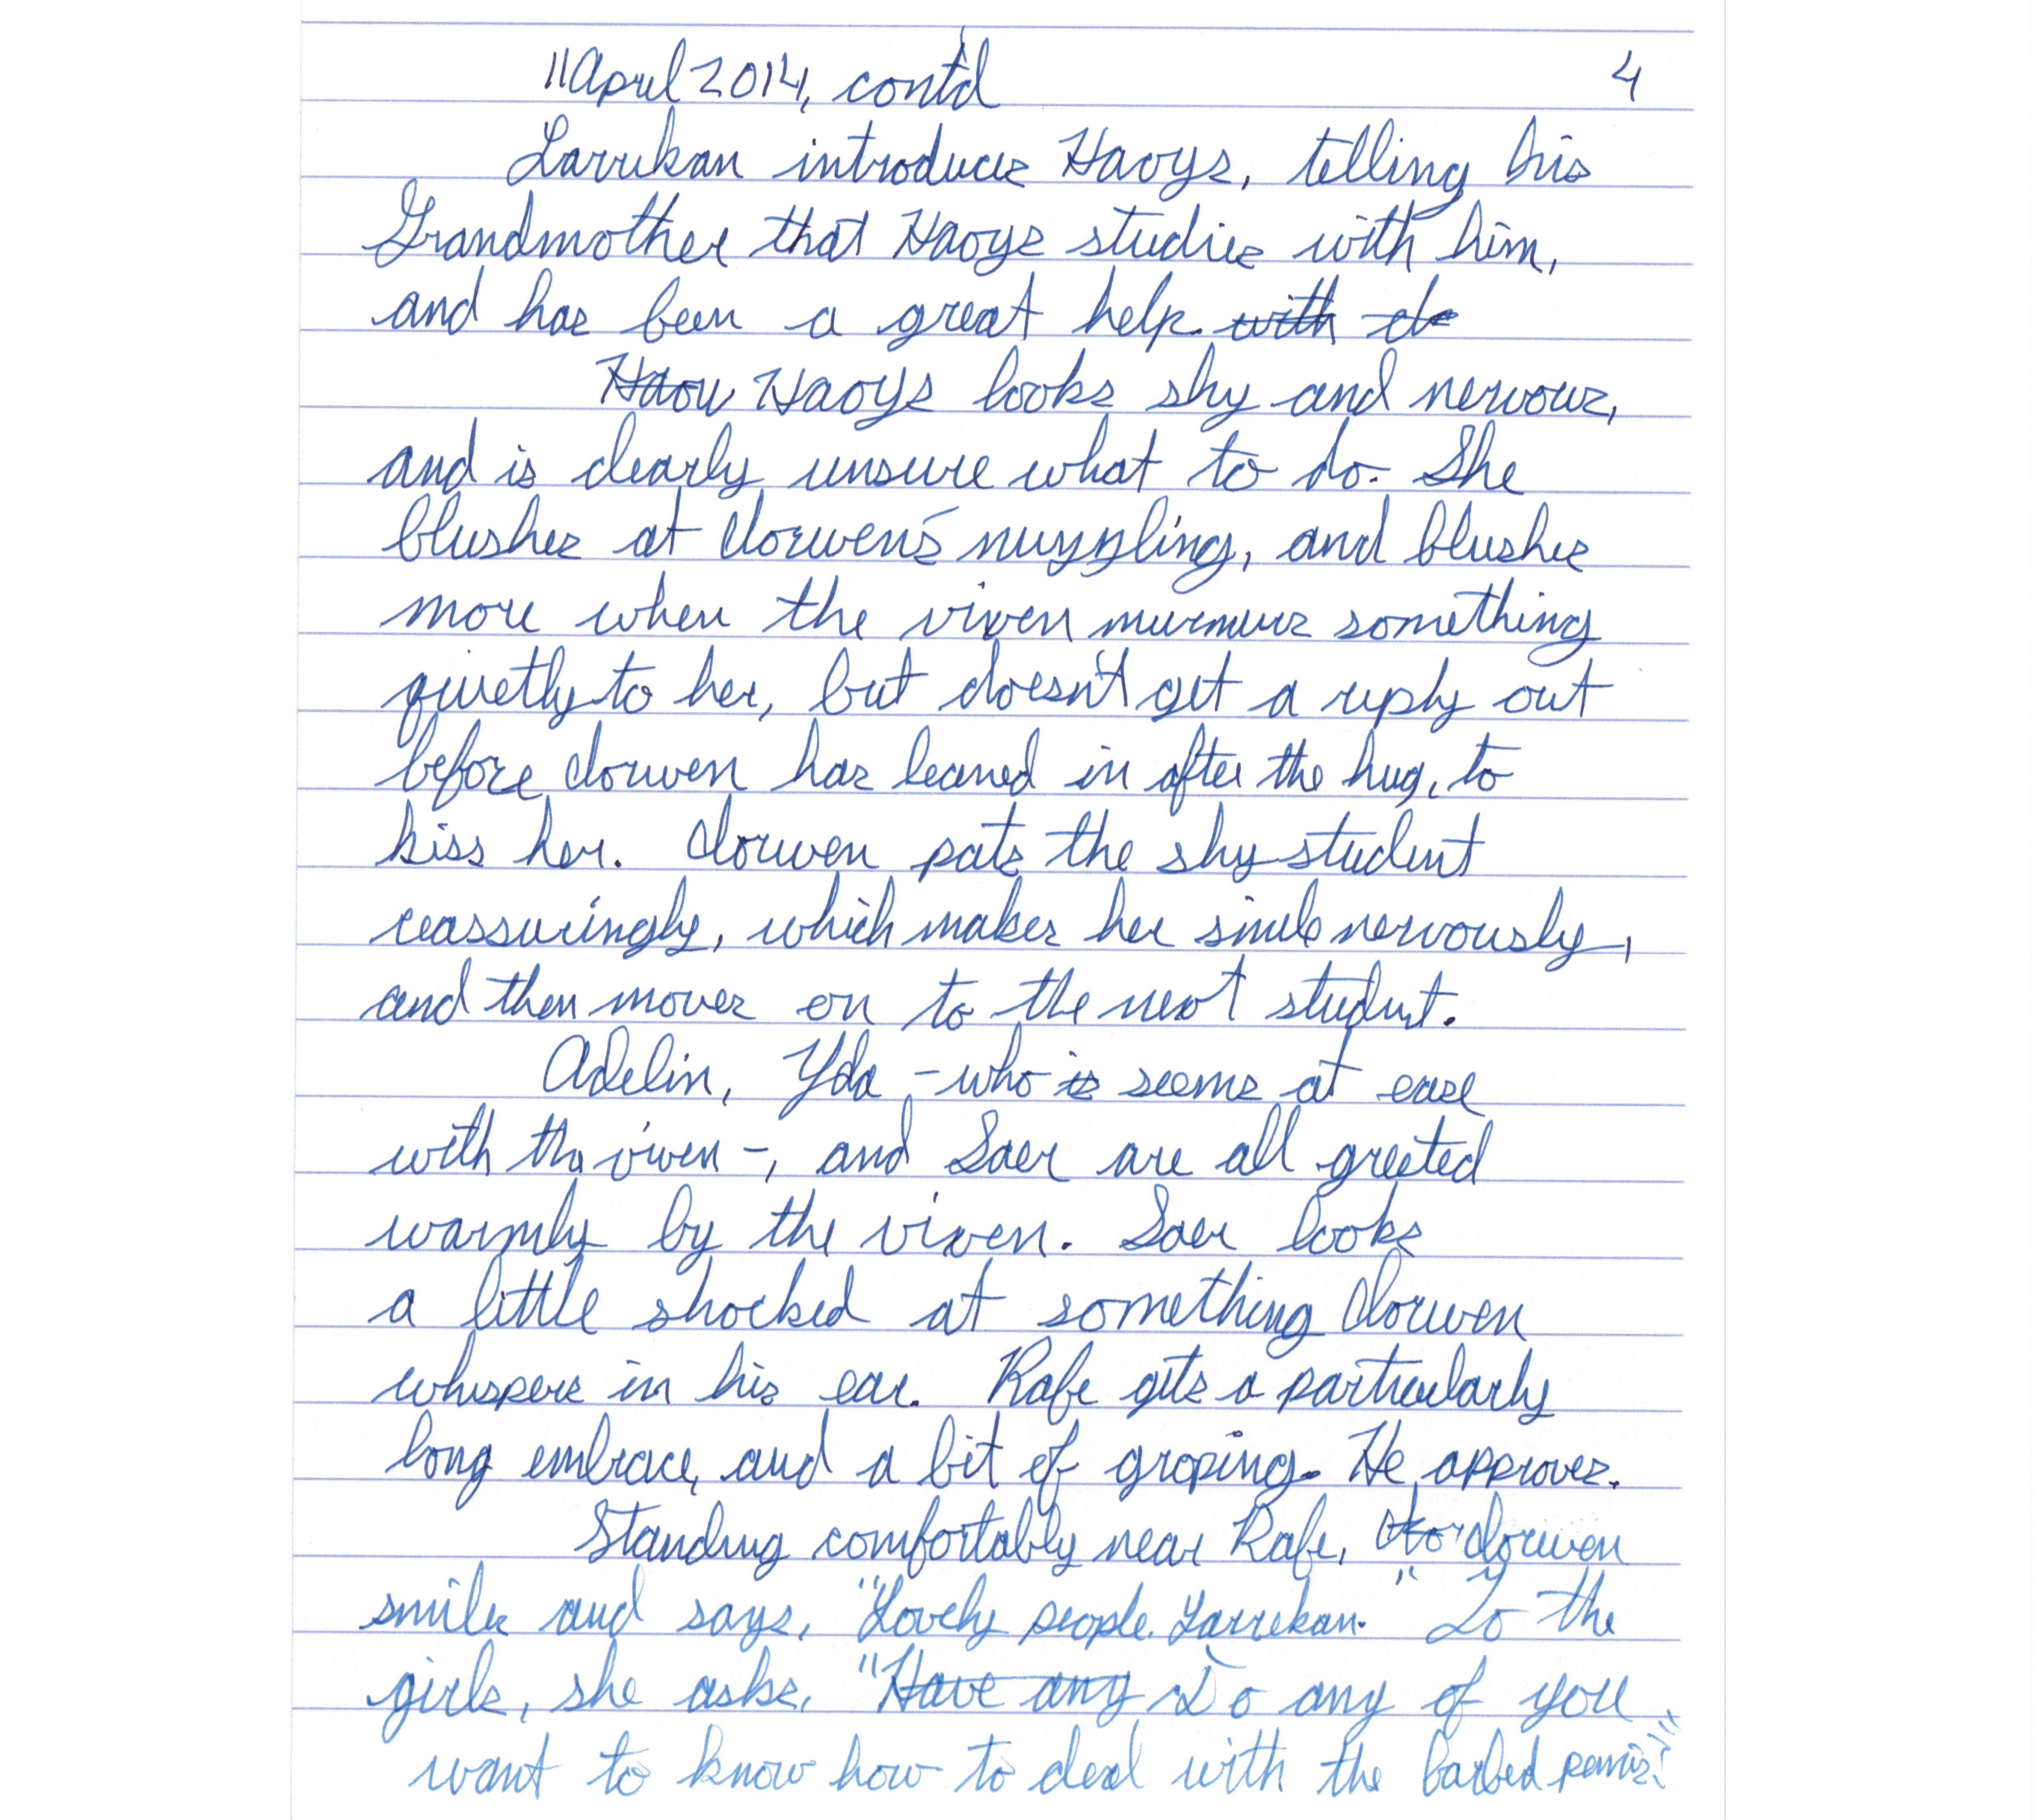 11 April 2014, cont'd 4
Larrekan introduces Haoys, telling his
Grandmother that Haoys studies with him,
and has been a great help. with de
Haou Haoys looks shy and nervous,
and is clearly unsure what to do. She
blushes at Dorwen's nuzzling, and blushes
more when the vixen murmurs something
quietly to her, but doesn't get a reply out
before Dorwen has leaned in after the hug, to
kiss her. Dorwen pats the shy student
reassuringly, which makes her smile nervously,
and then moves on to the next student.
Adelin, Yda – who is seems at ease
with the vixen –, and Saer are all greeted
warmly by the vixen. Saer looks
a little shocked at something Dorwen
whispers in his ear. Rafe gets a particularly
long embrace, and a bit of groping. He approves.
Standing comfortably near Rafe, Dorwen
smiles and says, "Lovely people, Larrekan." To the
girls, she asks, "Have any Do any of you
want to know how to deal with the barbed penis?"